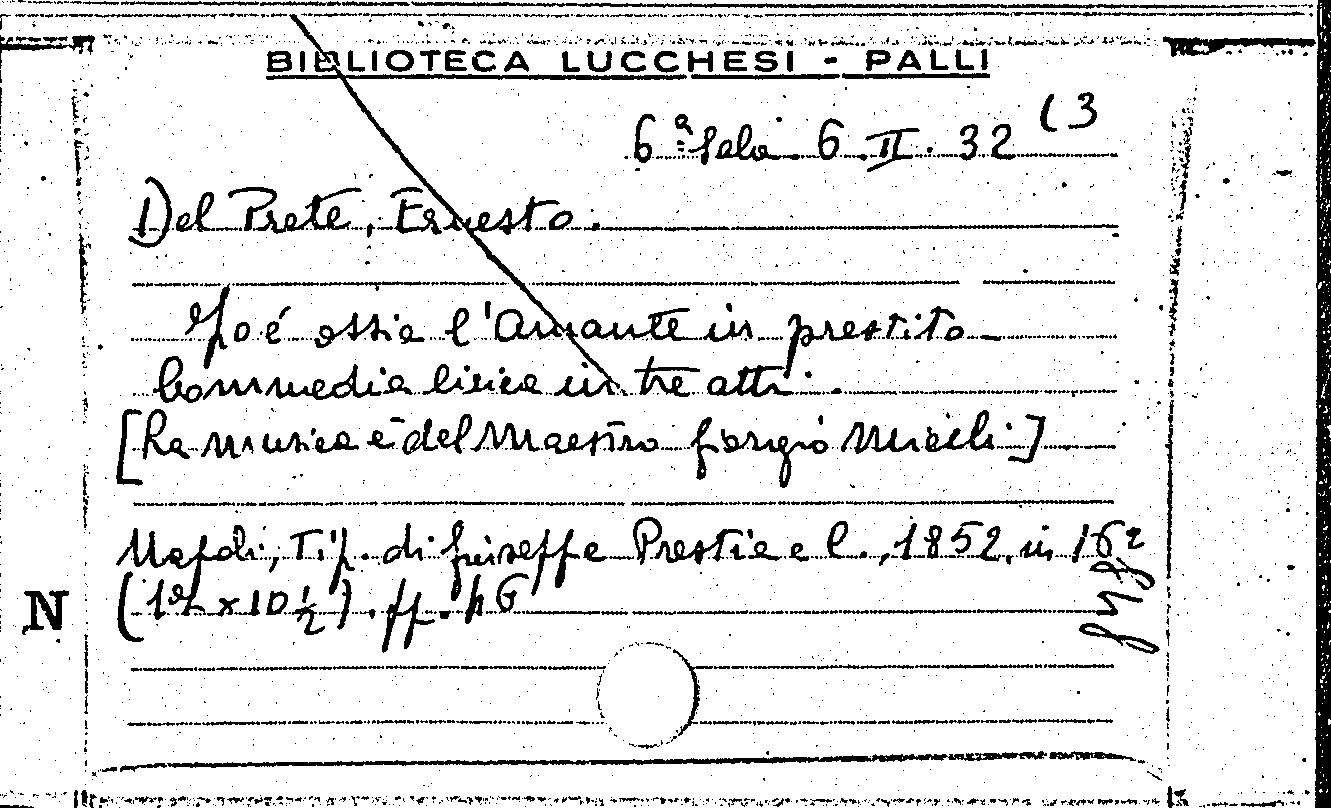 BIBLIOTECA LUCCHESI - PALLI
6ª Sala 6.II.32 (3
Del Prete, Ernesto.
Zoé ossia l'Amante in prestito
Commedia lirica in tre atti.
[La musica è del Maestro Giorgio Miceli]
Napoli, Tip. di Giuseppe Prestia e C., 1852. in 16º
N
x 10 ½). pp. 46